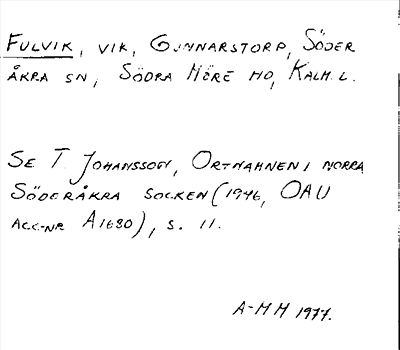 FULVIK, VIK, GUNNARSTORP, SÖDER
ÅKRA SN, SÖDRA MÖRE HD, KALM. L.
SE T. JOHANSSON, ORTNAMNEN I NORRA
SÖDERÅKRA SOCKEN (1946, OAU
ACC-NR A1680), S. 11.
A-MH 1977.